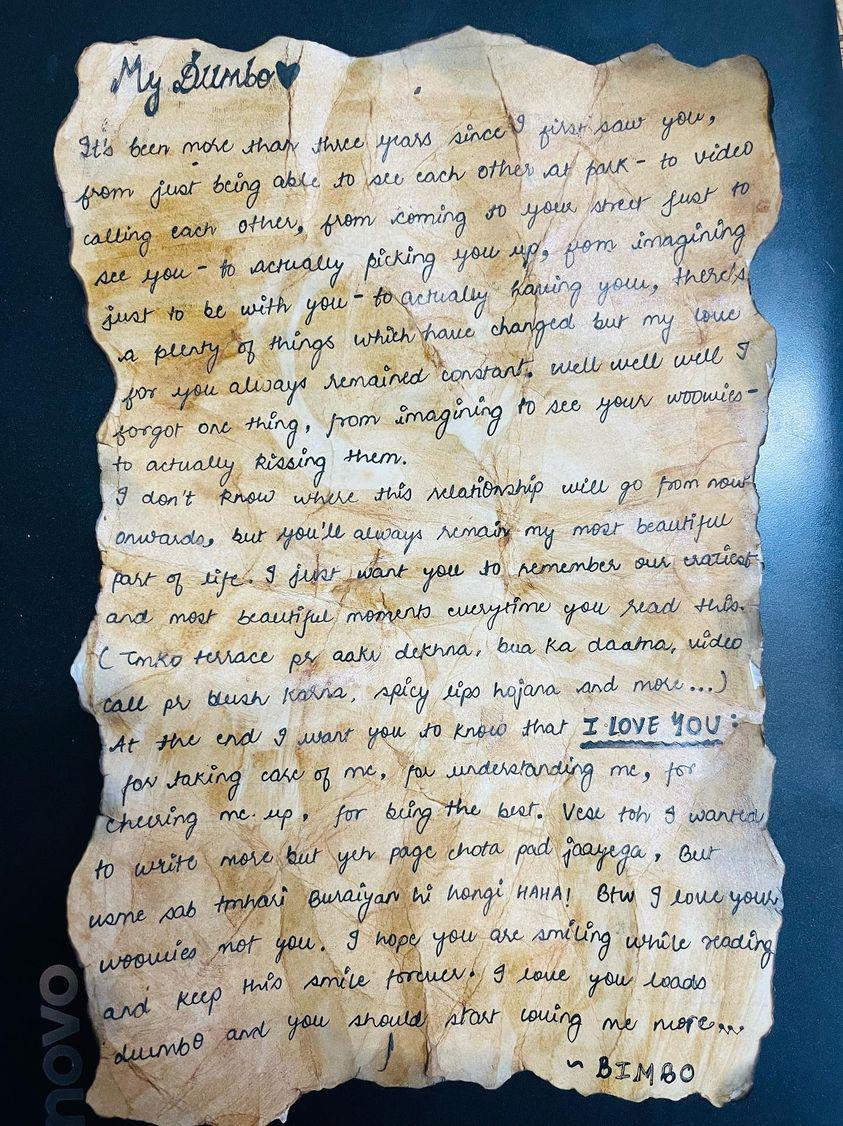 My Dumbo♥
It's been more than three years since I first saw you,
from just being able to see each other at park - to video
calling each other, from coming to your street just to
see you - to actually picking you up, from imagining
just to be with you - to actually having you, there's
a plenty of things which have changed but my love
for you always remained constant. well well well I
forgot one thing, from imagining to see your woowies -
to actually kissing them.
I don't know where this relationship will go from now
onwards, but you'll always remain my most beautiful
part of life. I just want you to remember our craziest
and most beautiful moments everytime you read this.
( Tmko terrace pr aake dekhna, bua ka daatna, video
call pr blush karna, spicy lips hojana and more...)
At the end I want you to know that I LOVE YOU :
for taking care of me, for understanding me, for
cheering me up, for being the best. Vese toh I wanted
to write more but yeh page chota pad jaayega, But
usme sab tmhari Buraiyan hi hongi HAHA! Btw I love your
woowies not you. I hope you are smiling while reading
and keep this smile forever. I love you loads
dumbo and you should start loving me more...
~ BIMBO
novo